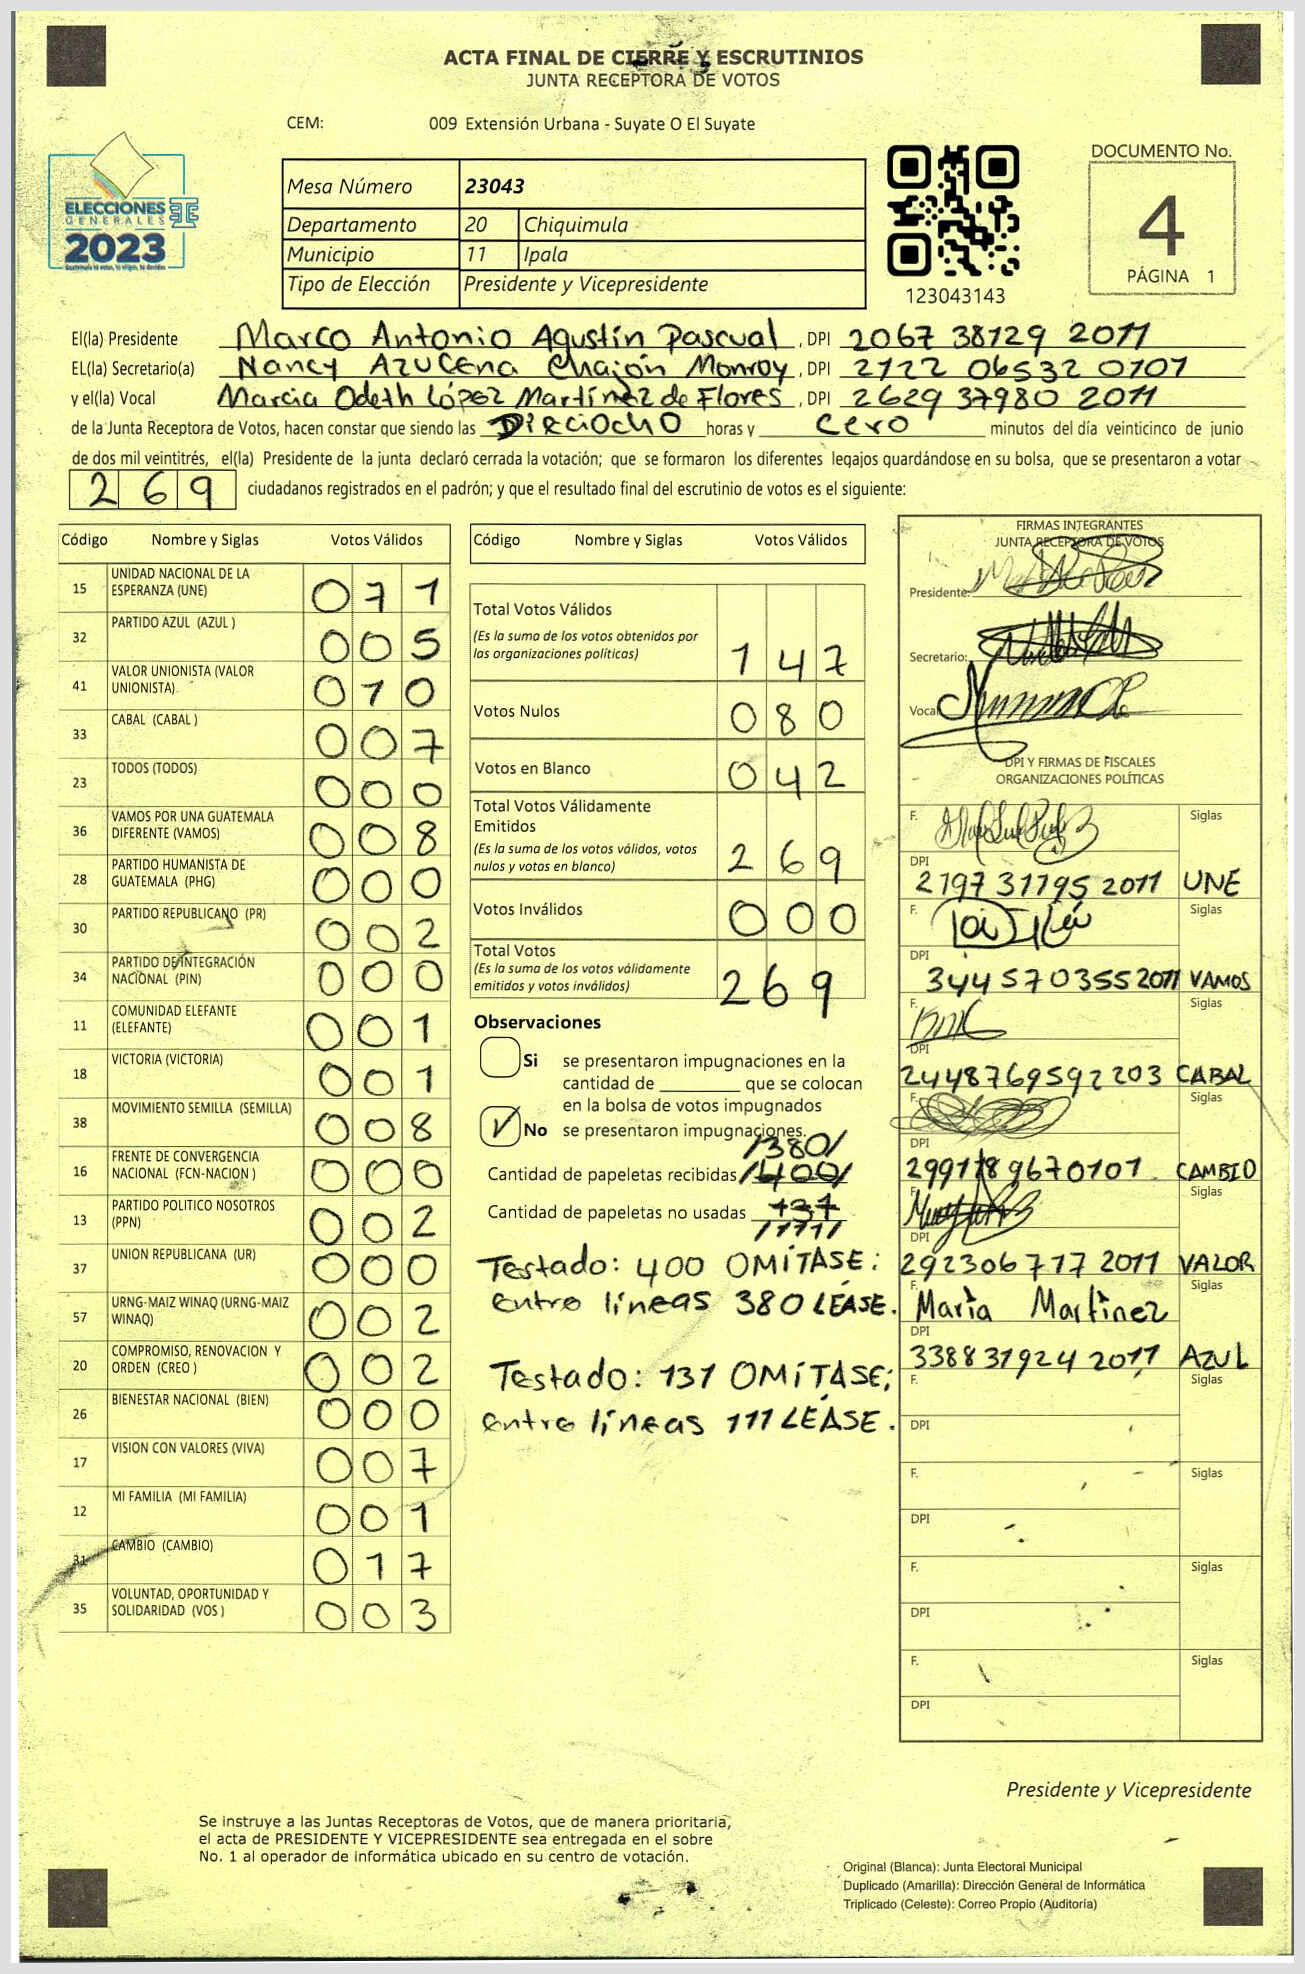 ACTA FINAL DE CIERRE Y ESCRUTINIOS
JUNTA RECEPTORA DE VOTOS
CEM: 009 Extensión Urbana - Suyate O El Suyate
ELECCIONES
GENERALES
2023
Mesa Número 23043
Departamento 20 Chiquimula
Municipio 11 Ipala
Tipo de Elección Presidente y Vicepresidente
123043143
DOCUMENTO No.
4
PÁGINA 1
El(la) Presidente Marco Antonio Agustín Pascual, DPI 2067 38129 2011
EL(la) Secretario(a) Nancy Azucena Chajón Monroy, DPI 2122 06532 0101
y el(la) Vocal Marcia Odeth López Martínez de Flores, DPI 2629 37980 2011
de la Junta Receptora de Votos, hacen constar que siendo las Dieciocho horas y cero minutos del día veinticinco de junio
de dos mil veintitrés, el(la) Presidente de la junta declaró cerrada la votación; que se formaron los diferentes legajos guardándose en su bolsa, que se presentaron a votar
269 ciudadanos registrados en el padrón; y que el resultado final del escrutinio de votos es el siguiente:
Código Nombre y Siglas Votos Válidos
15 UNIDAD NACIONAL DE LA ESPERANZA (UNE) 071
32 PARTIDO AZUL (AZUL ) 005
41 VALOR UNIONISTA (VALOR UNIONISTA) 010
33 CABAL (CABAL ) 007
23 TODOS (TODOS) 000
36 VAMOS POR UNA GUATEMALA DIFERENTE (VAMOS) 008
28 PARTIDO HUMANISTA DE GUATEMALA (PHG) 000
30 PARTIDO REPUBLICANO (PR) 002
34 PARTIDO DE INTEGRACIÓN NACIONAL (PIN) 000
11 COMUNIDAD ELEFANTE (ELEFANTE) 001
18 VICTORIA (VICTORIA) 001
38 MOVIMIENTO SEMILLA (SEMILLA) 008
16 FRENTE DE CONVERGENCIA NACIONAL (FCN-NACION ) 000
13 PARTIDO POLITICO NOSOTROS (PPN) 002
37 UNION REPUBLICANA (UR) 000
57 URNG-MAIZ WINAQ (URNG-MAIZ WINAQ) 002
20 COMPROMISO, RENOVACION Y ORDEN (CREO ) 002
26 BIENESTAR NACIONAL (BIEN) 000
17 VISION CON VALORES (VIVA) 007
12 MI FAMILIA (MI FAMILIA) 001
31 CAMBIO (CAMBIO) 017
35 VOLUNTAD, OPORTUNIDAD Y SOLIDARIDAD (VOS ) 003
Código Nombre y Siglas Votos Válidos
Total Votos Válidos 147
(Es la suma de los votos obtenidos por
las organizaciones políticas)
Votos Nulos 080
Votos en Blanco 042
Total Votos Válidamente
Emitidos 269
(Es la suma de los votos válidos, votos
nulos y votos en blanco)
Votos Inválidos 000
Total Votos 269
(Es la suma de los votos válidamente
emitidos y votos inválidos)
Observaciones
Si se presentaron impugnaciones en la
cantidad de ________ que se colocan
en la bolsa de votos impugnados
No se presentaron impugnaciones.
/380/
Cantidad de papeletas recibidas /400/
Cantidad de papeletas no usadas 131
/111/
Testado: 400 OMÍTASE;
entre líneas 380 LEASE.
Testado: 131 OMÍTASE;
entre líneas 111 LÉASE.
FIRMAS INTEGRANTES
JUNTA RECEPTORA DE VOTOS
Presidente:
Secretario:
Vocal
DPI Y FIRMAS DE FISCALES
ORGANIZACIONES POLÍTICAS
F. Siglas
DPI 2197 31795 2011 UNE
F. Siglas
DPI 3445703552011 VAMOS
F. Siglas
DPI 2448769592203 CABAL
F. Siglas
DPI 2991789670101 CAMBIO
F. Siglas
DPI 292306717 2011 VALOR
F. María Martínez Siglas
DPI 338831924 2011 AZUL
F. Siglas
DPI
F. Siglas
DPI
F. Siglas
DPI
F. Siglas
DPI
Presidente y Vicepresidente
Se instruye a las Juntas Receptoras de Votos, que de manera prioritaria,
el acta de PRESIDENTE Y VICEPRESIDENTE sea entregada en el sobre
No. 1 al operador de informática ubicado en su centro de votación.
Original (Blanca): Junta Electoral Municipal
Duplicado (Amarilla): Dirección General de Informática
Triplicado (Celeste): Correo Propio (Auditoría)